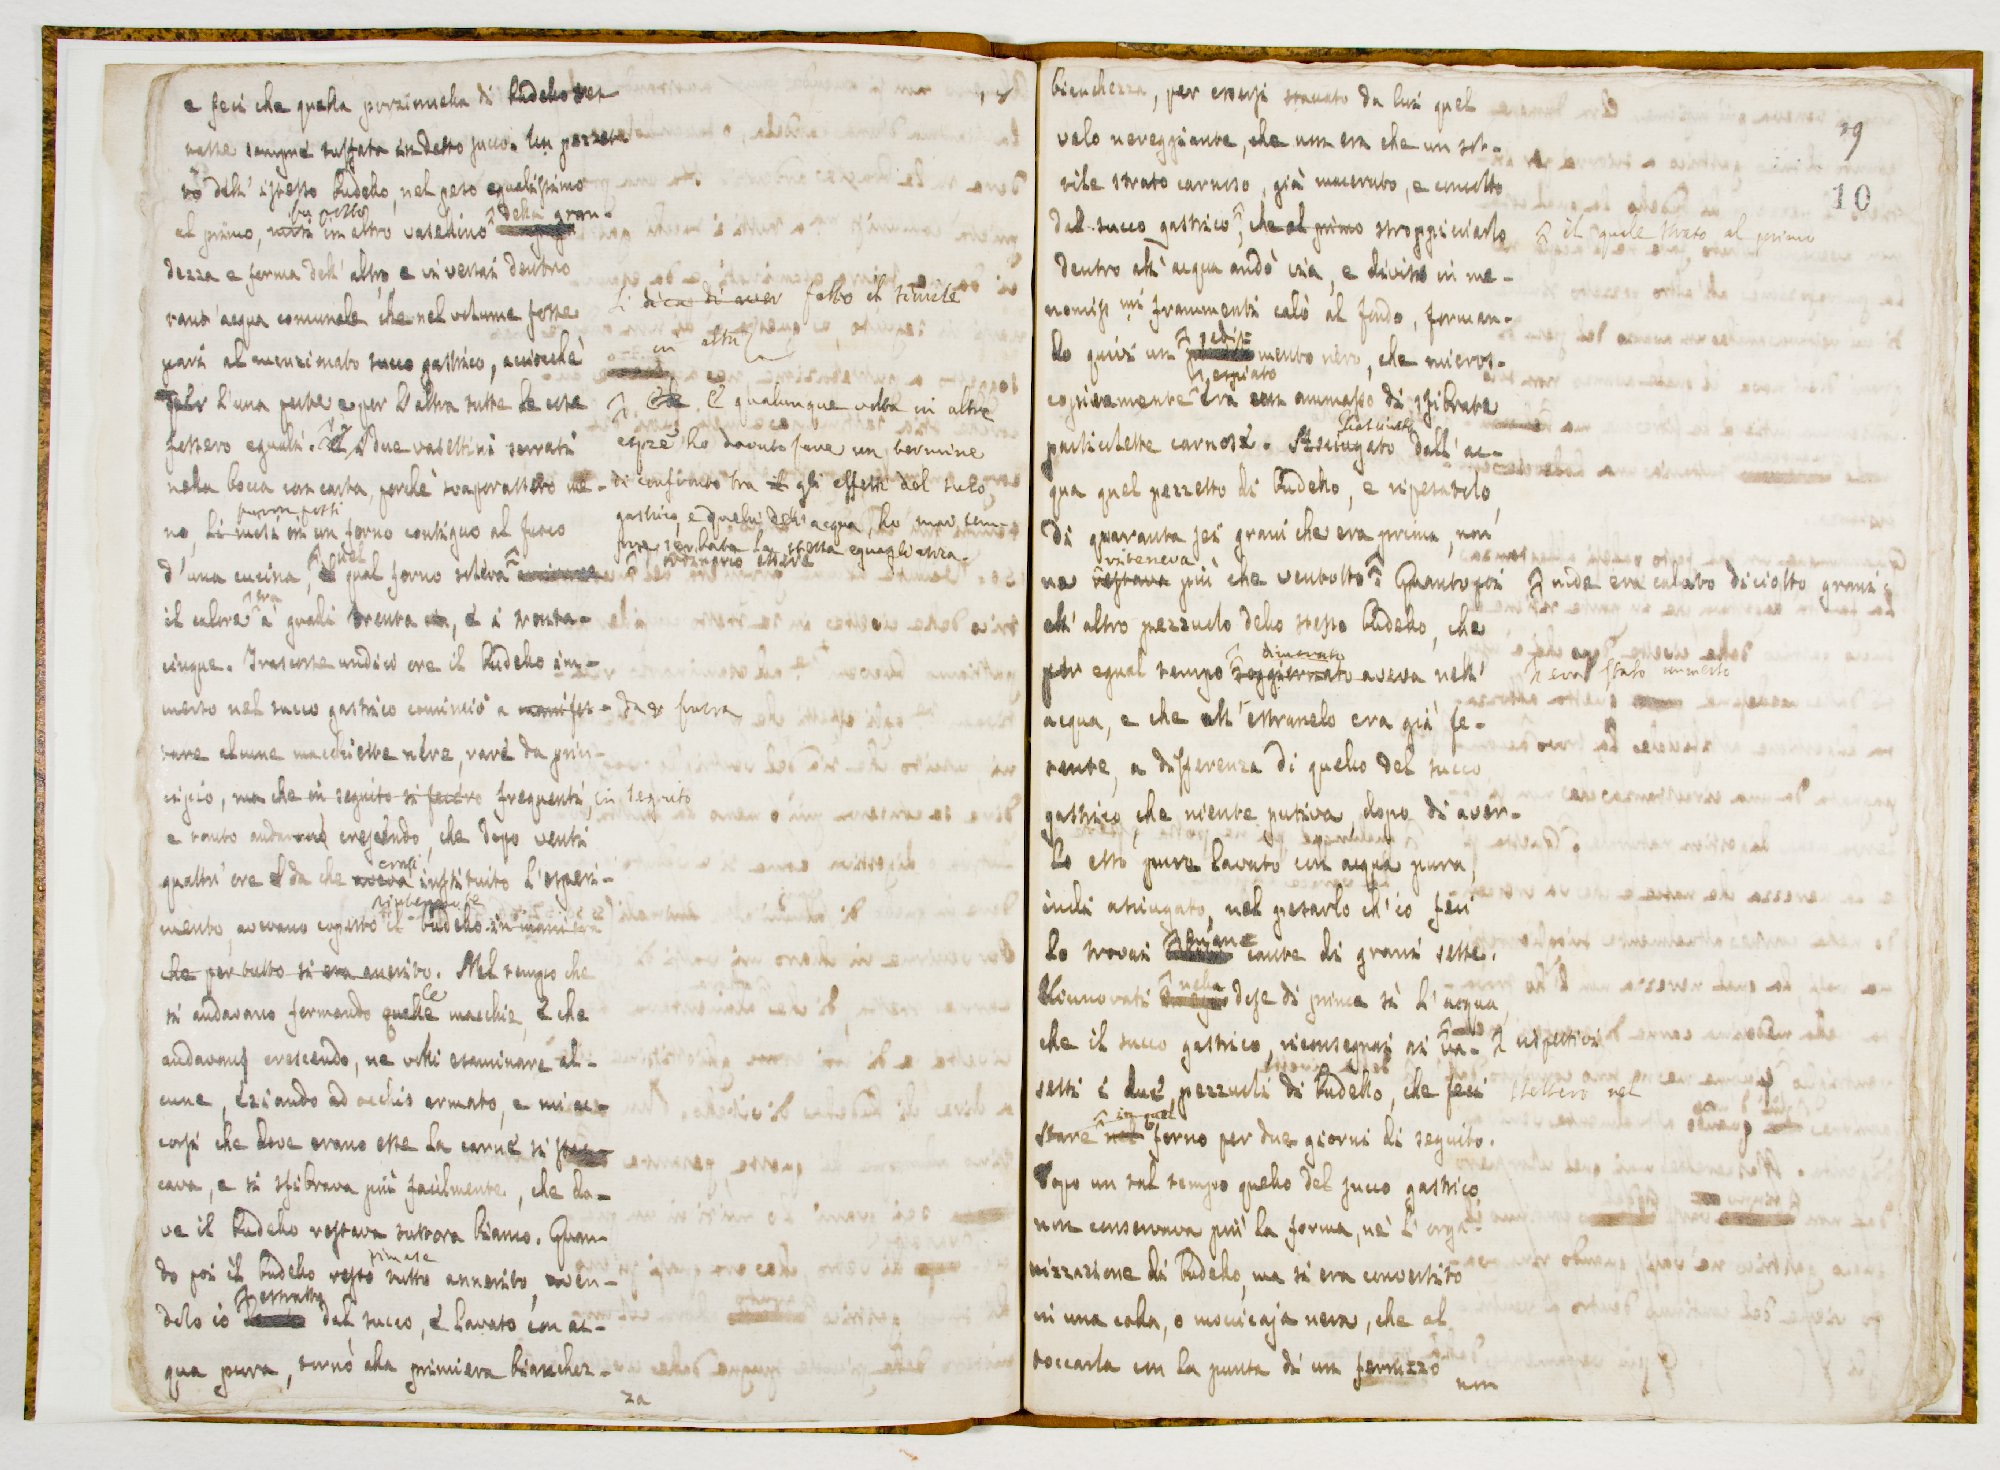 e feci che quella porzioncella di budello res
tasse sempre tuffata in detto succo. Un pezzet
to dell' istesso budello, nel peso egualissimo
al primo, fu messo in altro vasellino della gran-
dezza e forma dell' altro, e vi versai dentro
tant' acqua comunale che nel volume fosse
pari al menzionato succo gastrico, acciocchè
per l'una parte e per l'altra tutte le cose
fossero eguali. I due vasellini serrati
nella bocca con carta, perchè svaporassero me-
no, li misi in un forno contiguo al fuoco
furon posti
d'una cucina, nel qual forno soleva
il calore era a gradi trenta, e i trenta-
cinque. Trascorse undici ore il budello im-
merso nel succo gastrico cominciò a manifes-
tare alcune macchiette nére, rare da prin-
cipio, ma che in seguito si fecero frequenti,
e tanto andarono crescendo, che dopo venti
quattr' ore da che aveva instituito l'esperi-
erasi
mento, avevano coperto il budello in maniera
che per tutto si era annerito. Nel tempo che
si andavano formando quelle macchie, e che
le
andavano crescendo, ne volli esaminare al-
cune, eziando ad occhio armato, e mi ac-
corsi che dove erano esse la carne si stac-
cava, e si sfibrava più facilmente, che do-
ve il budello restava tuttora bianco. Quan-
do poi il budello restò tutto annerito, aven-
rimase
dolo io estratto dal succo, e lavato con ac-
qua pura, tornò alla primiera bianchez-
za
Si dica di aver fatto il simile
in altri
E qualunque volta in altre
esprze ho dovuto fare un termine
di confronto tra gli effetti del suco
gastrico, e quelli dell' acqua, ho mai sem-
pre serbata la stessa eguaglianza.
ordinario essere
da fuora
in seguito
29
10
bianchezza, per essersi staccato da lui quel
velo nereggiante, che non era che un sot-
tile strato carnoso, già macerato, e concotto
dal succo gastrico, che al primo stroppicciarlo
il quale strato al primo
dentro all' acqua andò via, e diviso in me-
nomissimi frammenti calò al fondo, forman-
do quivi un sedimento néro, che micros-
copicamente era un ammasso di sfibrate
particolette carnose. Asciugato dall' ac-
qua quel pezzetto di budello, e ripesatolo,
di quaranta sei grani che era prima, non
riteneva
ne restava più che ventotto. Quanto poi
onde era calato diciotto grani
all' altro pezzuolo dello stesso budello, che
per egual tempo soggiornato aveva nell'
dimorato
era stato immerso
acqua, e che all' estraerlo era già fe-
tente, a differenza di quello del succo
gastrico, che niente putiva, dopo di aver-
lo esso pure lavato con acqua pura,
indi asciugato, nel pesarlo ch' io feci
lo trovai mancante di grani sette.
Rinnovati nella dose di prima sì l'acqua,
che il succo gastrico, riconsegnai ai va-
rispettivi
setti i due pezzuoli di budello, che feci
stettero nel
stare nel forno per due giorni di seguito.
in quel
Dopo un tal tempo quello del succo gastrico
non conservava più la forma, nè l' orga-
nizzazione di budello, ma si era convertito
in una colla, o mocicaja nera, che al
toccarla con la punta di un ferruzzo
non